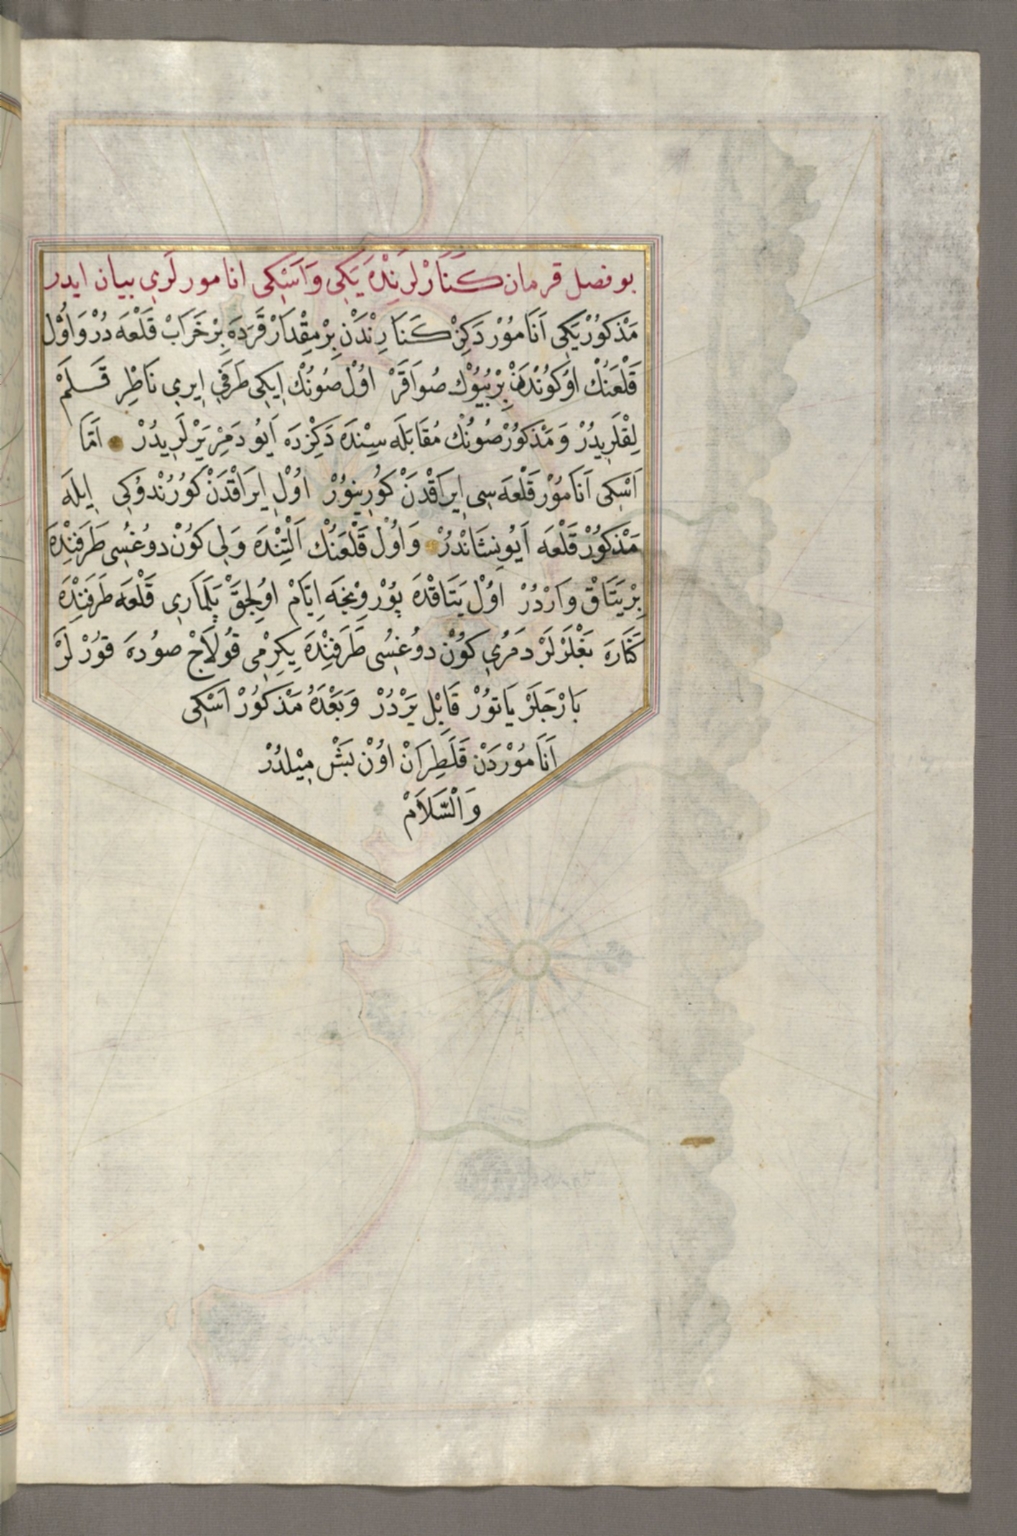 بو فصل قرمان كَنَارْلَرِنْدَه يَكِى وَ اَسْكِى انامورلَرى بيان ايدر
مَذْكُورْ يَكِى اَنَامُورْ دَكِزْ كَنَارِنْدَنْ بِرْ مِقْدَارْ قَرَهدَه بِرْ خَرَابْ قَلْعَه دُرْ وَ اوُلْ
قَلْعَنُكْ اوُكُونْدَنْ بِرْ بُيُوكْ صُو اَقَرْ اوُلْ صُونُكْ اِيكِى طَرَفِى اِيرِى نَاطِرْ قَلَمْ
لِقْلَرِيدُرْ وَ مَذْكُورْ صُونُكْ مُقَابَلَه سِنْدَه دَكِزدَه اَيُو دَمِرْ يَرْلَرِيدُرْ اَمَّا
اَسْكِى اَنَامُورْ قَلْعَه سِى اِيرَاقْدَنْ كُورِينُورْ اوُلْ اِيرَاقْدَنْ كُورُنْدُوكِى اِيلَه
مَذْكُورْ قَلْعَه اَيُو نِشَانْدُرْ وَ اوُلْ قَلْعَنُكْ اَلْتِنْدَه وَلِى كُونْ دوُغْسُى طَرَفِنْدَه
بِرْ يَتَاقْ وَارْدُرْ اوُلْ يَتَاقْدَه پُورْوِنْجَه اِيَّامْ اوُلِجَقْ پَلَمَارِى قَلْعَه طَرَفِنْدَه
كَنَارَه بَغْلَرْلَرْ دَمُرِى كُونْ دوُغْسُى طَرَفِنْدَه يِكِرْمِى قُولَاجْ صُودَه قوُرْلَرْ
بَارْجَلَرْ يَاتُورْ قَابِلْ يَرْدُرْ وَ بَعْدَهُ مَذْكُورْ اَسْكِى
اَنَامُورْدَنْ قَلَطِرَانْ اوُنْ بَشْ مِيْلدُرْ
وَالسَّلَامْ